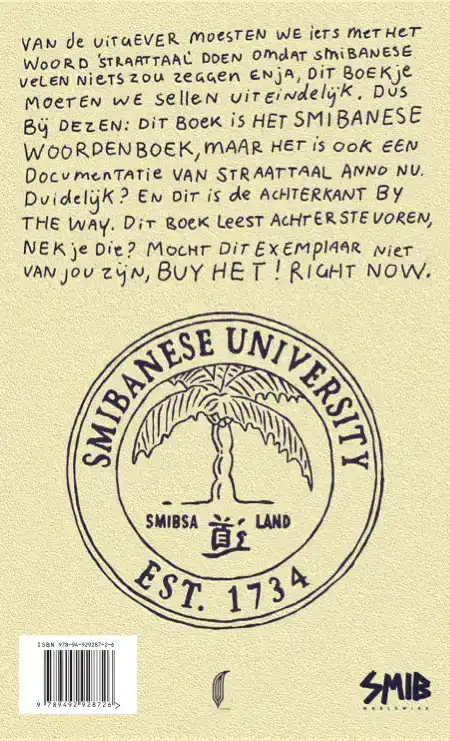 VAN de UITGEVER MOESTEN WE iETS MET HET
WOORD 'STRAATTAAL' DOEN OMDAT SMIBANESE
VELEN NIETS ZOU ZEGGEN ENJA, DIT BOEKje
MOETEN WE SELLEN UITEINDELijK. DUS
Bij DEZEN: DIT BOEK iS HET SMIBANESE
WOORDENBOEK, MAAR HET iS OOK EEN
DOCUMENTATIE VAN STRAATTAAL ANNO NU.
Duidelijk? EN DIT iS de ACHTERKANT BY
THE WAY. DIT BOEK LEEST ACHTERSTEVOREN,
NEK je Die? MOCHT DIT EXEMPLAAR NiET
VAN jou ZijN, BUY HET! RIGHT NOW.
SMIBANESE UNIVERSITY
SMIBSA LAND
EST. 1734
ISBN 978-94-929287-2-6
9 789492 928726 >
SMIB
WORLDWIDE